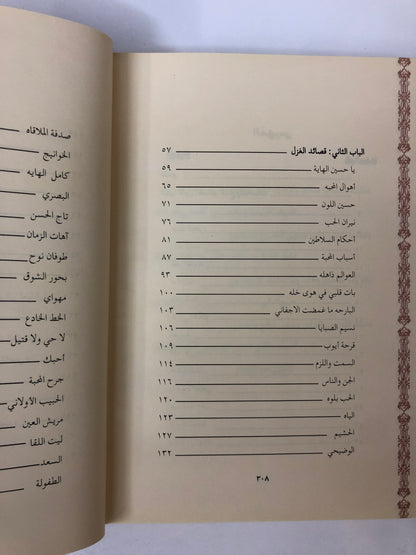 الباب الثاني: قصائد الغزل ٥٧
يا حسين الهاية ٥٩
أهوال المحبه ٦٥
حسين اللون ٧١
نيران الحب ٧٦
أحكام السلاطين ٨١
أسباب المحبة ٨٧
العوالم ذاهله ٩٣
بات قلبي في هوى خله ١٠٠
البارحه ما غمضت الأجفاني ١٠٣
نسيم الصبايا ١٠٦
قرحة أيوب ١٠٩
السمت واللزم ١١٤
الجن والناس ١١٦
الحب بلوه ١٢٠
الياه ١٢٣
الحشيم ١٢٧
الوضيحي ١٣٢
٣٠٨
صدفة الملاقاه
الخوانيج
كامل الهايه
البصري
تاج الحسن
آهات الزمان
طوفان نوح
بحور الشوق
مهواي
الخط الخادع
لا حي ولا قتيل
أحبك
جرح المحبة
الحبيب الأولاني
مريش العين
ليت اللقا
السعد
الطفولة